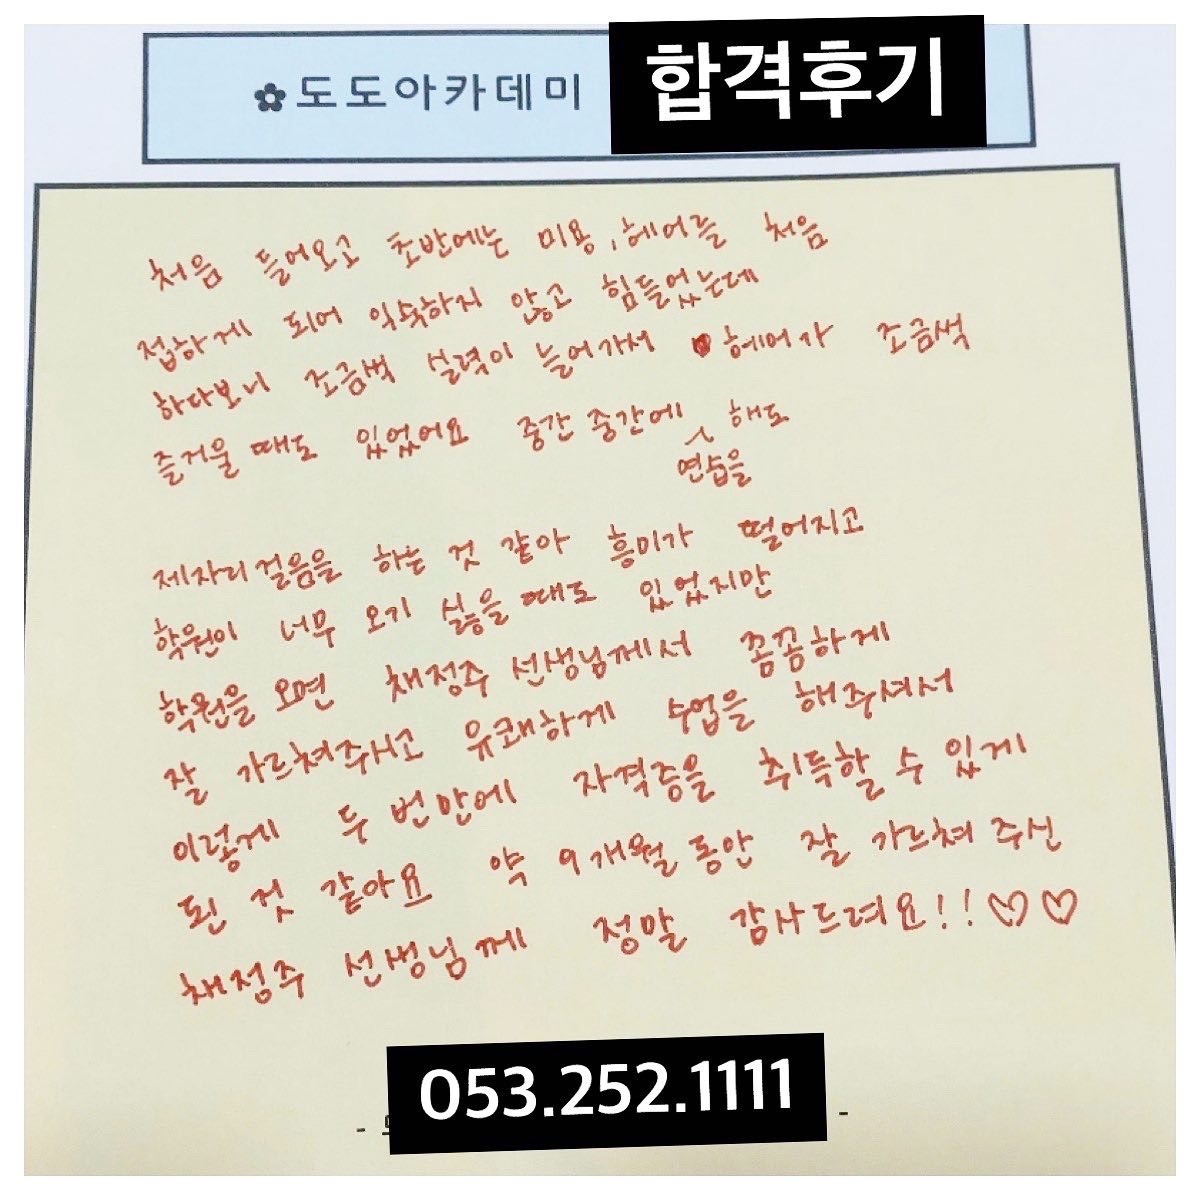 ✿도도아카데미 합격후기
처음 들어오고 초반에는 미용, 헤어를 처음
접하게 되어 익숙하지 않고 힘들었는데
하다보니 조금씩 실력이 늘어가서 헤어가 조금씩
즐거울 때도 있었어요 중간 중간에 연습을 해도
제자리 걸음을 하는 것 같아 흥미가 떨어지고
학원이 너무 오기 싫을 때도 있었지만
학원을 오면 채정주 선생님께서 꼼꼼하게
잘 가르쳐주시고 유쾌하게 수업을 해주셔서
이렇게 두 번만에 자격증을 취득할 수 있게
된 것 같아요 약 9개월 동안 잘 가르쳐 주신
채정주 선생님께 정말 감사드려요!!♡♡
053.252.1111